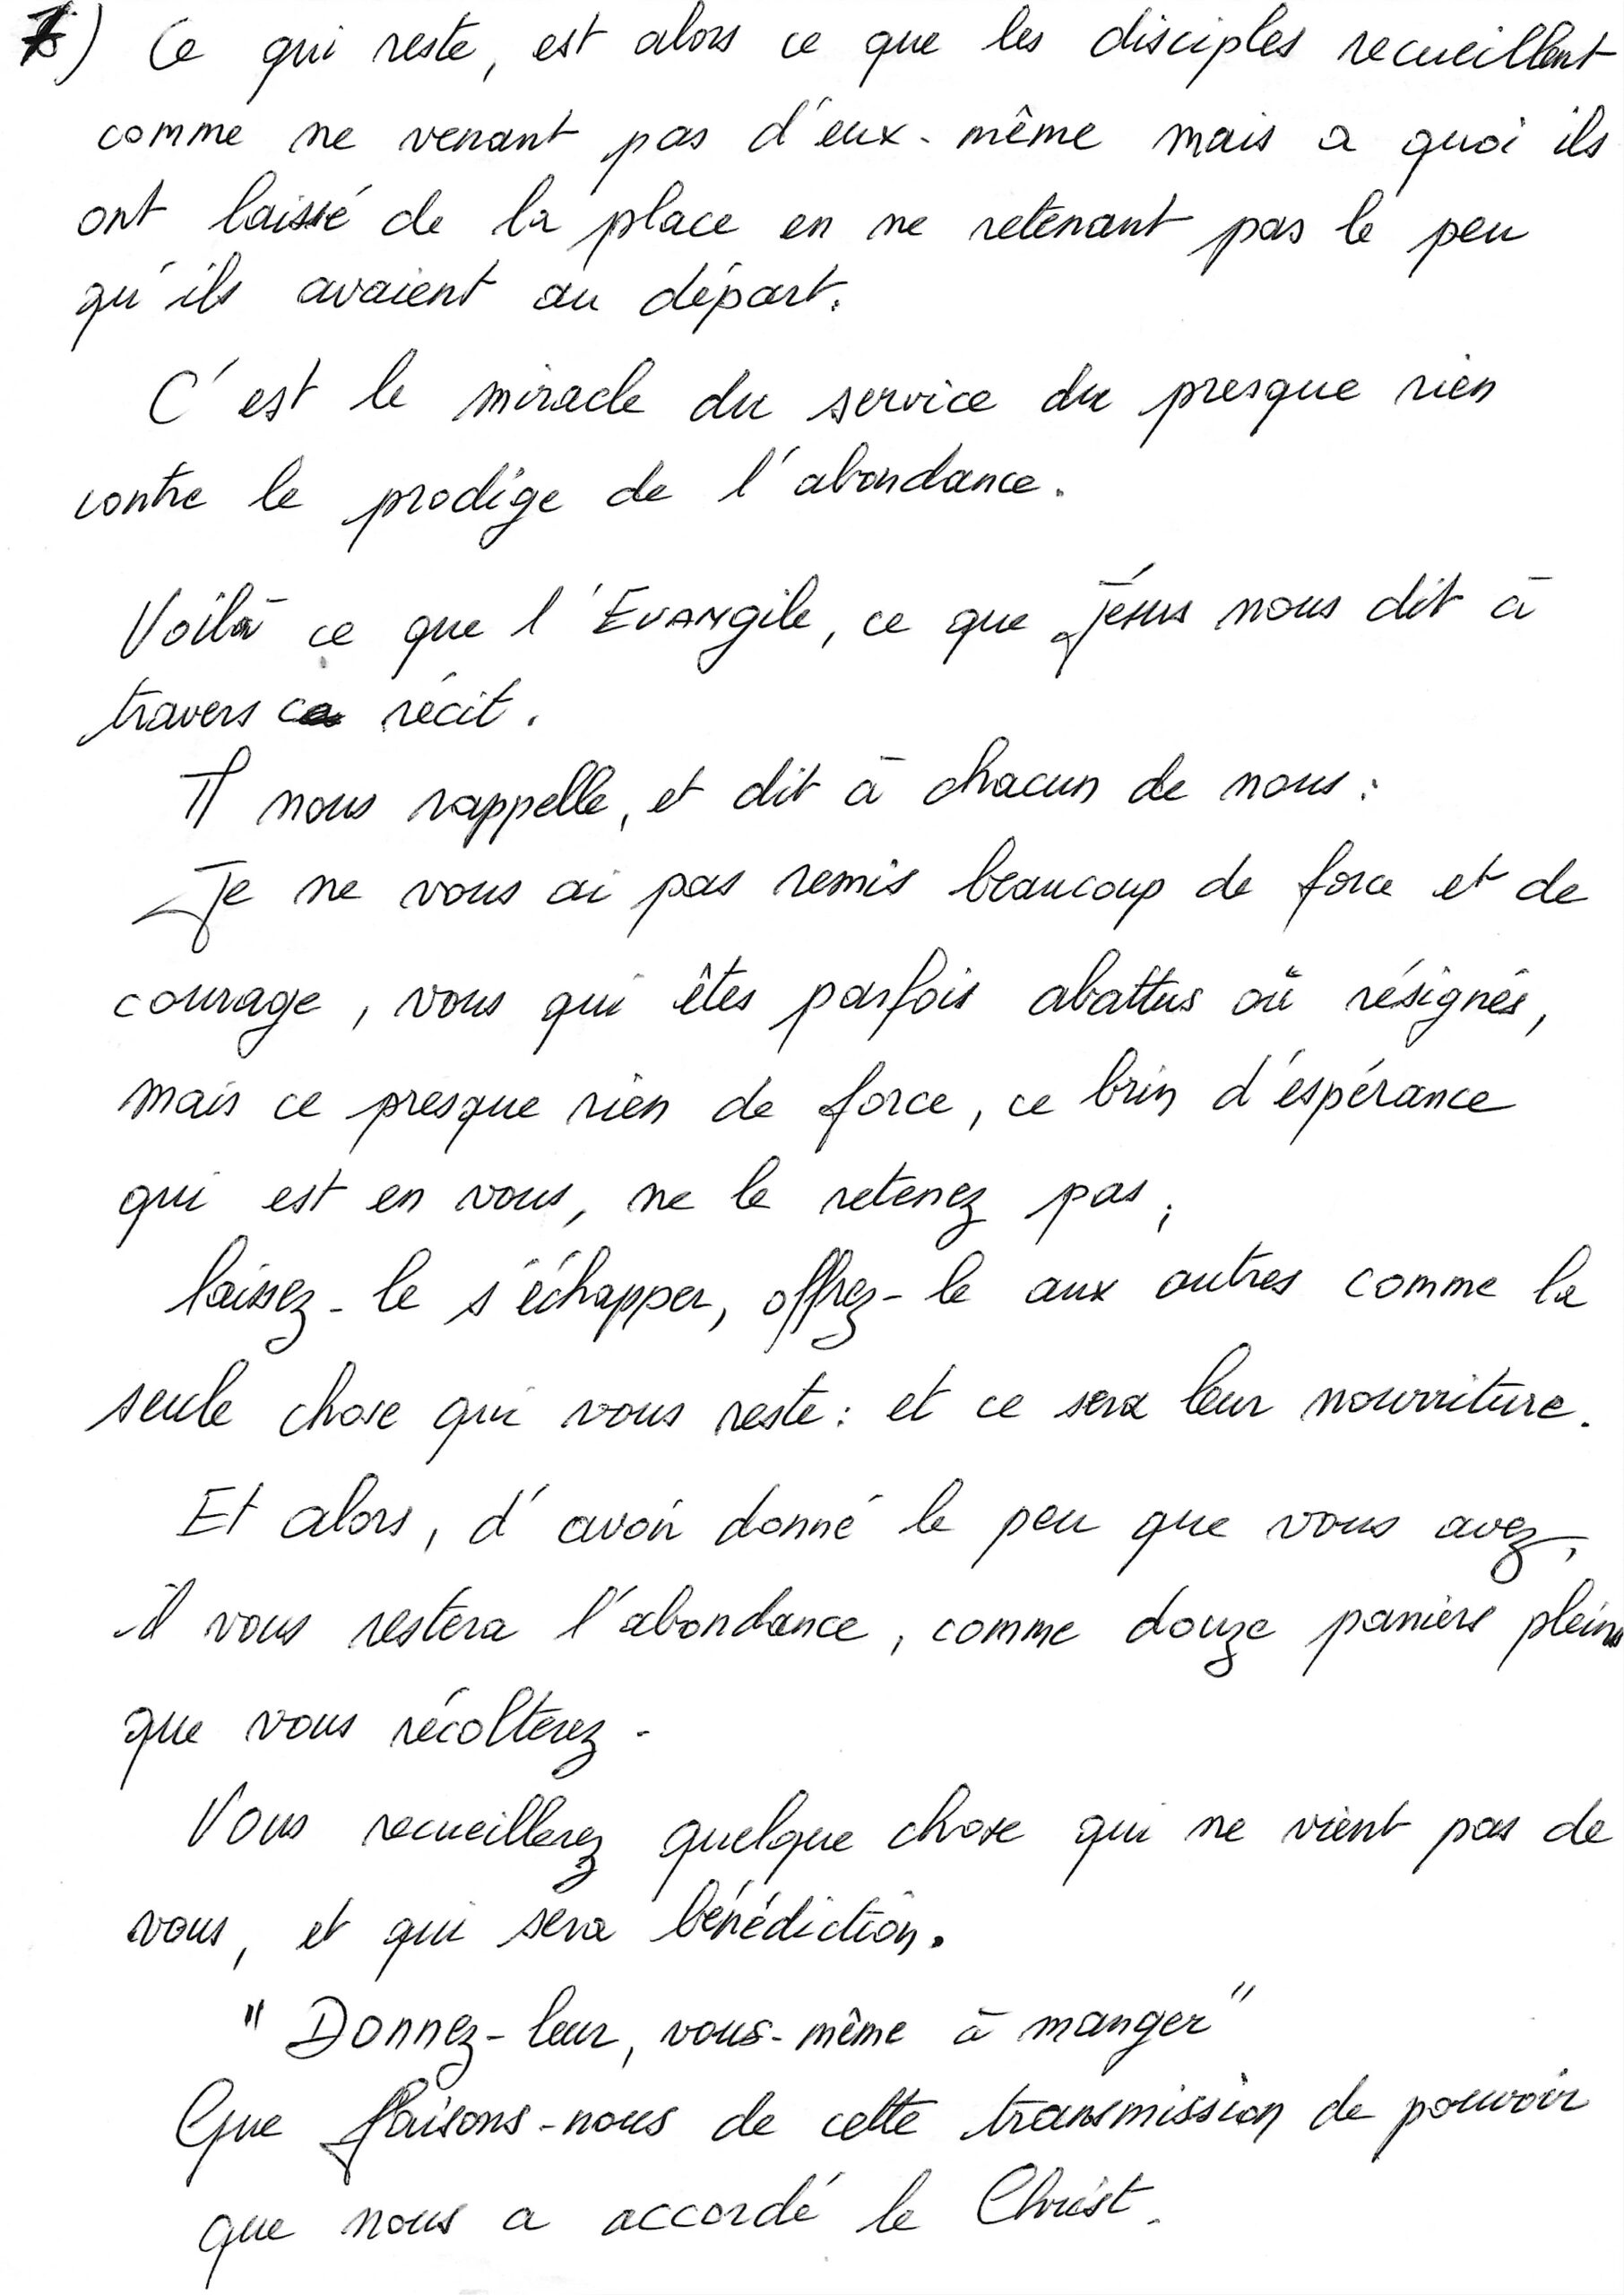 7) Ce qui reste, est alors ce que les disciples recueillent
comme ne venant pas d'eux-même mais a quoi ils
ont laissé de la place en ne retenant pas le peu
qu'ils avaient au départ.
C'est le miracle du service du presque rien
contre le prodige de l'abondance.
Voilà ce que l'Evangile, ce que Jésus nous dit à
travers ce récit.
Il nous rappelle, et dit à chacun de nous :
Je ne vous ai pas remis beaucoup de force et de
courage, vous qui êtes parfois abattus où résignés,
mais ce presque rien de force, ce brin d'éspérance
qui est en vous, ne le retenez pas,
laissez-le s'échapper, offrez-le aux autres comme la
seule chose qui vous reste : et ce sera leur nourriture.
Et alors, d'avoir donné le peu que vous avez,
il vous restera l'abondance, comme douze paniers pleins
que vous récolterez.
Vous recueillerez quelque chose qui ne vient pas de
vous, et qui sera bénédiction.
"Donnez-leur, vous-même à manger"
Que faisons-nous de cette transmission de pouvoir
que nous a accordé le Christ.